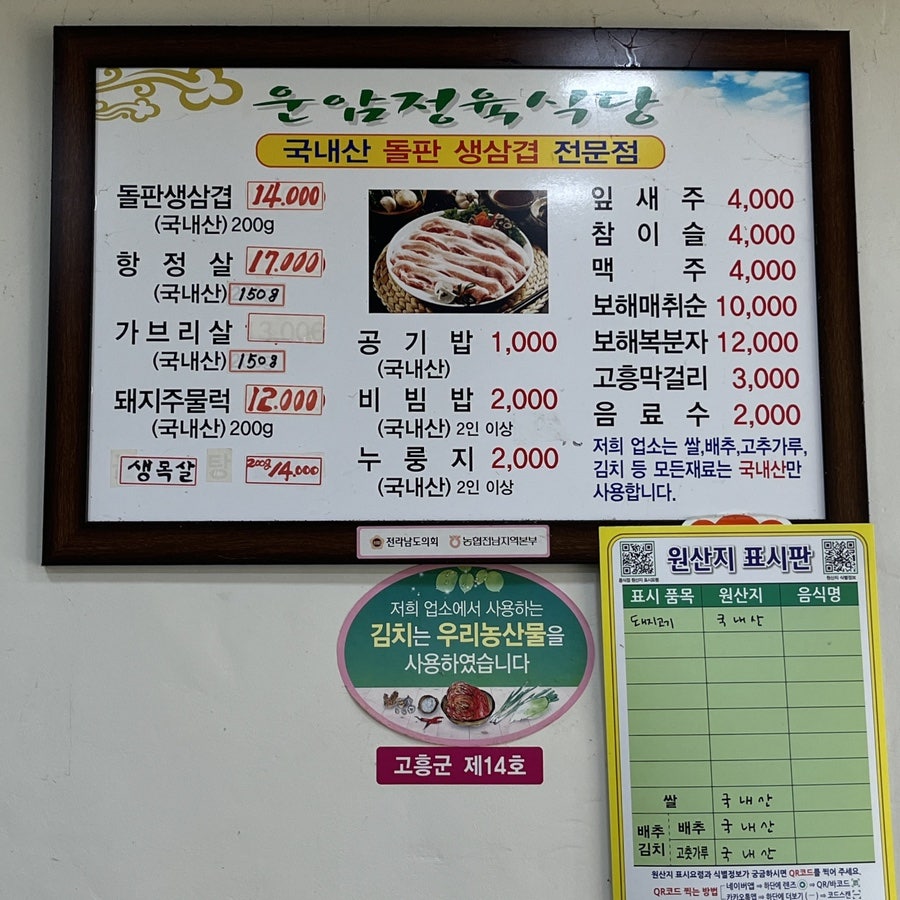 운암정육식당
국내산 돌판 생삼겹 전문점
돌판생삼겹 14.000
(국내산) 200g
항정살 17.000
(국내산) 150g
가브리살
(국내산) 150g
돼지주물럭 12.000
(국내산) 200g
생목살 200g 14.000
공기밥 1,000
(국내산)
비빔밥 2,000
(국내산) 2인 이상
누룽지 2,000
(국내산) 2인 이상
잎새주 4,000
참이슬 4,000
맥주 4,000
보해매취순 10,000
보해복분자 12,000
고흥막걸리 3,000
음료수 2,000
저희 업소는 쌀,배추,고추가루,
김치 등 모든재료는 국내산만
사용합니다.
전라남도의회 농협전남지역본부
저희 업소에서 사용하는
김치는 우리농산물을
사용하였습니다
고흥군 제14호
원산지 표시판
음식점 원산지 표시요령 원산지 식별정보
표시 품목 원산지 음식명
돼지고기 국내산
쌀 국내산
배추 김치 배추 국내산
고춧가루 국내산
원산지 표시요령과 식별정보가 궁금하시면 QR코드를 찍어 주세요.
QR코드 찍는 방법 네이버앱 ⇒ 하단에 렌즈 ⇒ QR/바코드
카카오톡앱 ⇒ 하단에 더보기 (···) ⇒ 코드스캔